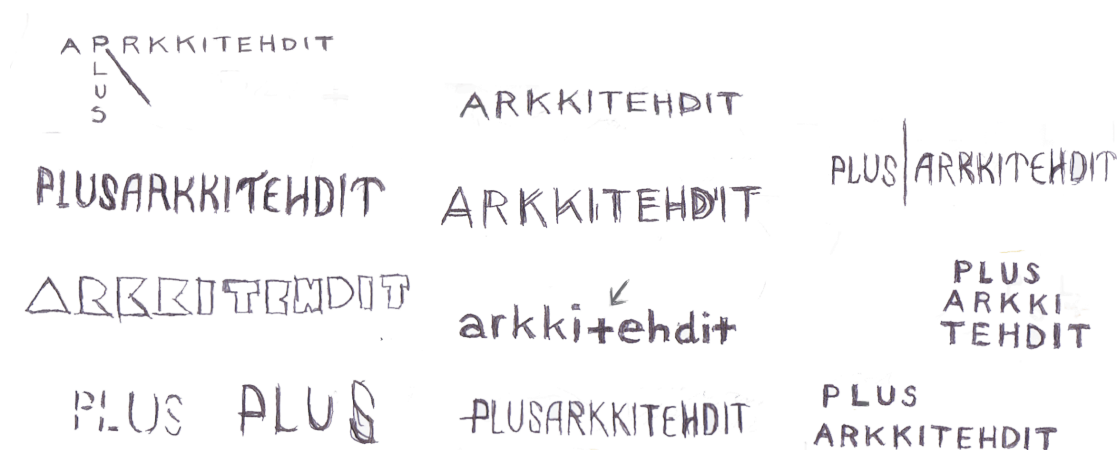 APRKKITEHDIT
L
U
S
PLUSARKKITEHDIT
ARKKITEHDIT
PLUS PLUS
ARKKITEHDIT
ARKKITEHDIT
arkkitehdit
PLUSARKKITEHDIT
PLUS|ARKKITEHDIT
PLUS
ARKKI
TEHDIT
PLUS
ARKKITEHDIT